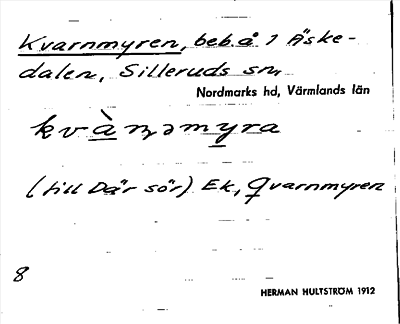 Kvarnmyren, beb. å 1 Äske-
dalen, Silleruds sn,
Nordmarks hd, Värmlands län
kvàn̥əmyra
(till Där sör) Ek, Qvarnmyren
8
HERMAN HULTSTRÖM 1912